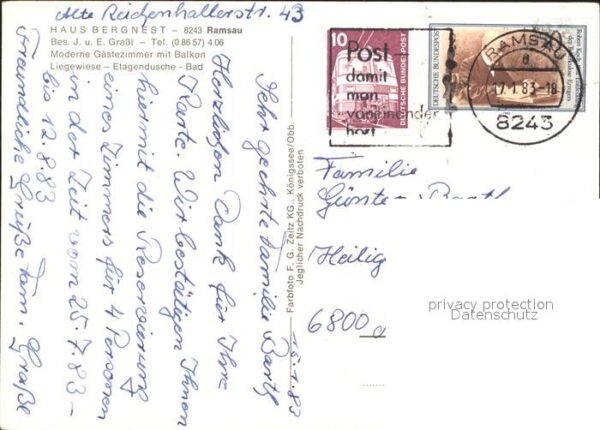 Alte Reichenhallerstr. 43
HAUS BERGNEST - 8243 Ramsau
Bes. J. u. E. Graßl - Tel. (0 86 57) 4 06
Moderne Gästezimmer mit Balkon
Liegewiese - Etagendusche - Bad
15.1.83
Sehr geehrte Familie Bartl
Herzlichen Dank für Ihre
Karte. Wir bestätigen Ihnen
hiermit die Reservierung
eines Zimmers für 4 Personen
in der Zeit vom 25.7.83 -
bis 12.8.83
Freundliche Grüße Fam. Graßl
Farbfoto F. G. Zeitz KG., Königssee/Obb.
Jeglicher Nachdruck verboten
10
DEUTSCHE BUNDESPOST
DEUTSCHE BUNDESPOST
Robert Koch
Post
damit
man
voneinander
hört
RAMSAU
a
17.1.83-18
8243
Familie
Günter
Heilig
6800
privacy protection
Datenschutz